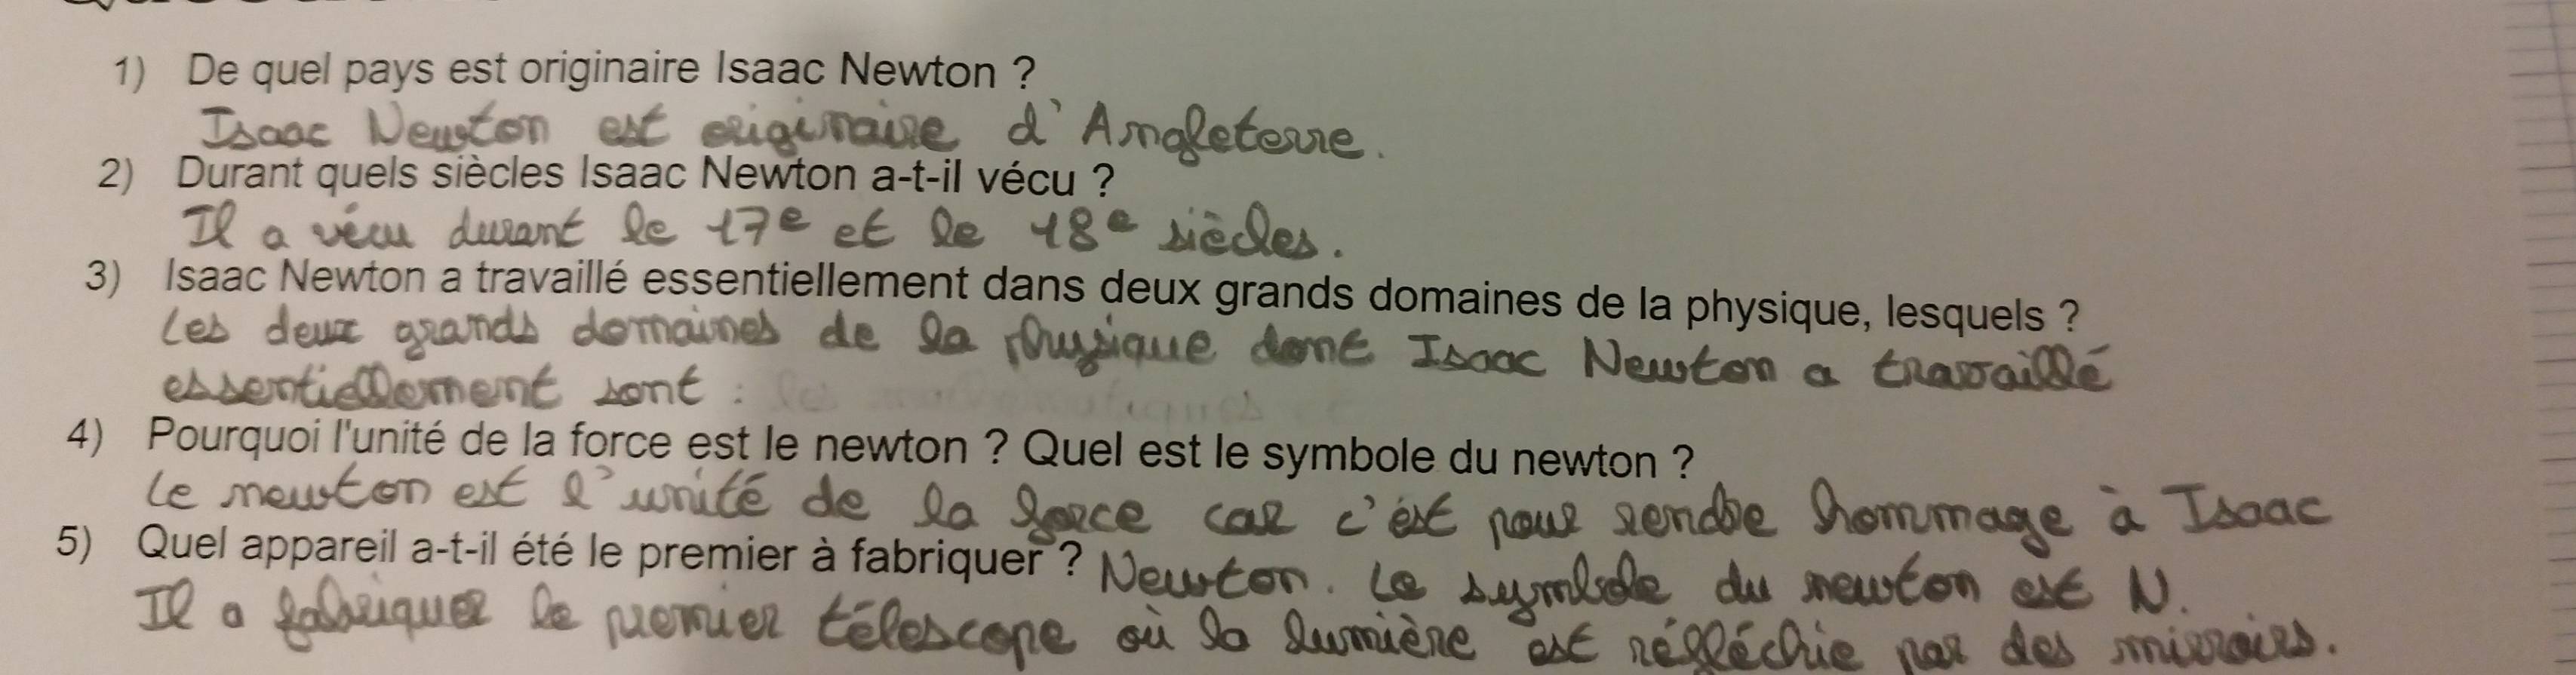 1) De quel pays est originaire Isaac Newton ?
Isaac Newton est originaire d'Angleterre.
2) Durant quels siècles Isaac Newton a-t-il vécu ?
Il a vécu durant le 17e et le 18e siècles.
3) Isaac Newton a travaillé essentiellement dans deux grands domaines de la physique, lesquels ?
Les deux grands domaines de la physique dont Isaac Newton a travaillé
essentiellement sont :
4) Pourquoi l'unité de la force est le newton ? Quel est le symbole du newton ?
Le newton est l'unité de la force car c'est pour rendre hommage à Isaac
Newton. Le symbole du newton est N.
5) Quel appareil a-t-il été le premier à fabriquer ?
Il a fabriquer le premier télescope où la lumière est réfléchie par des miroirs.